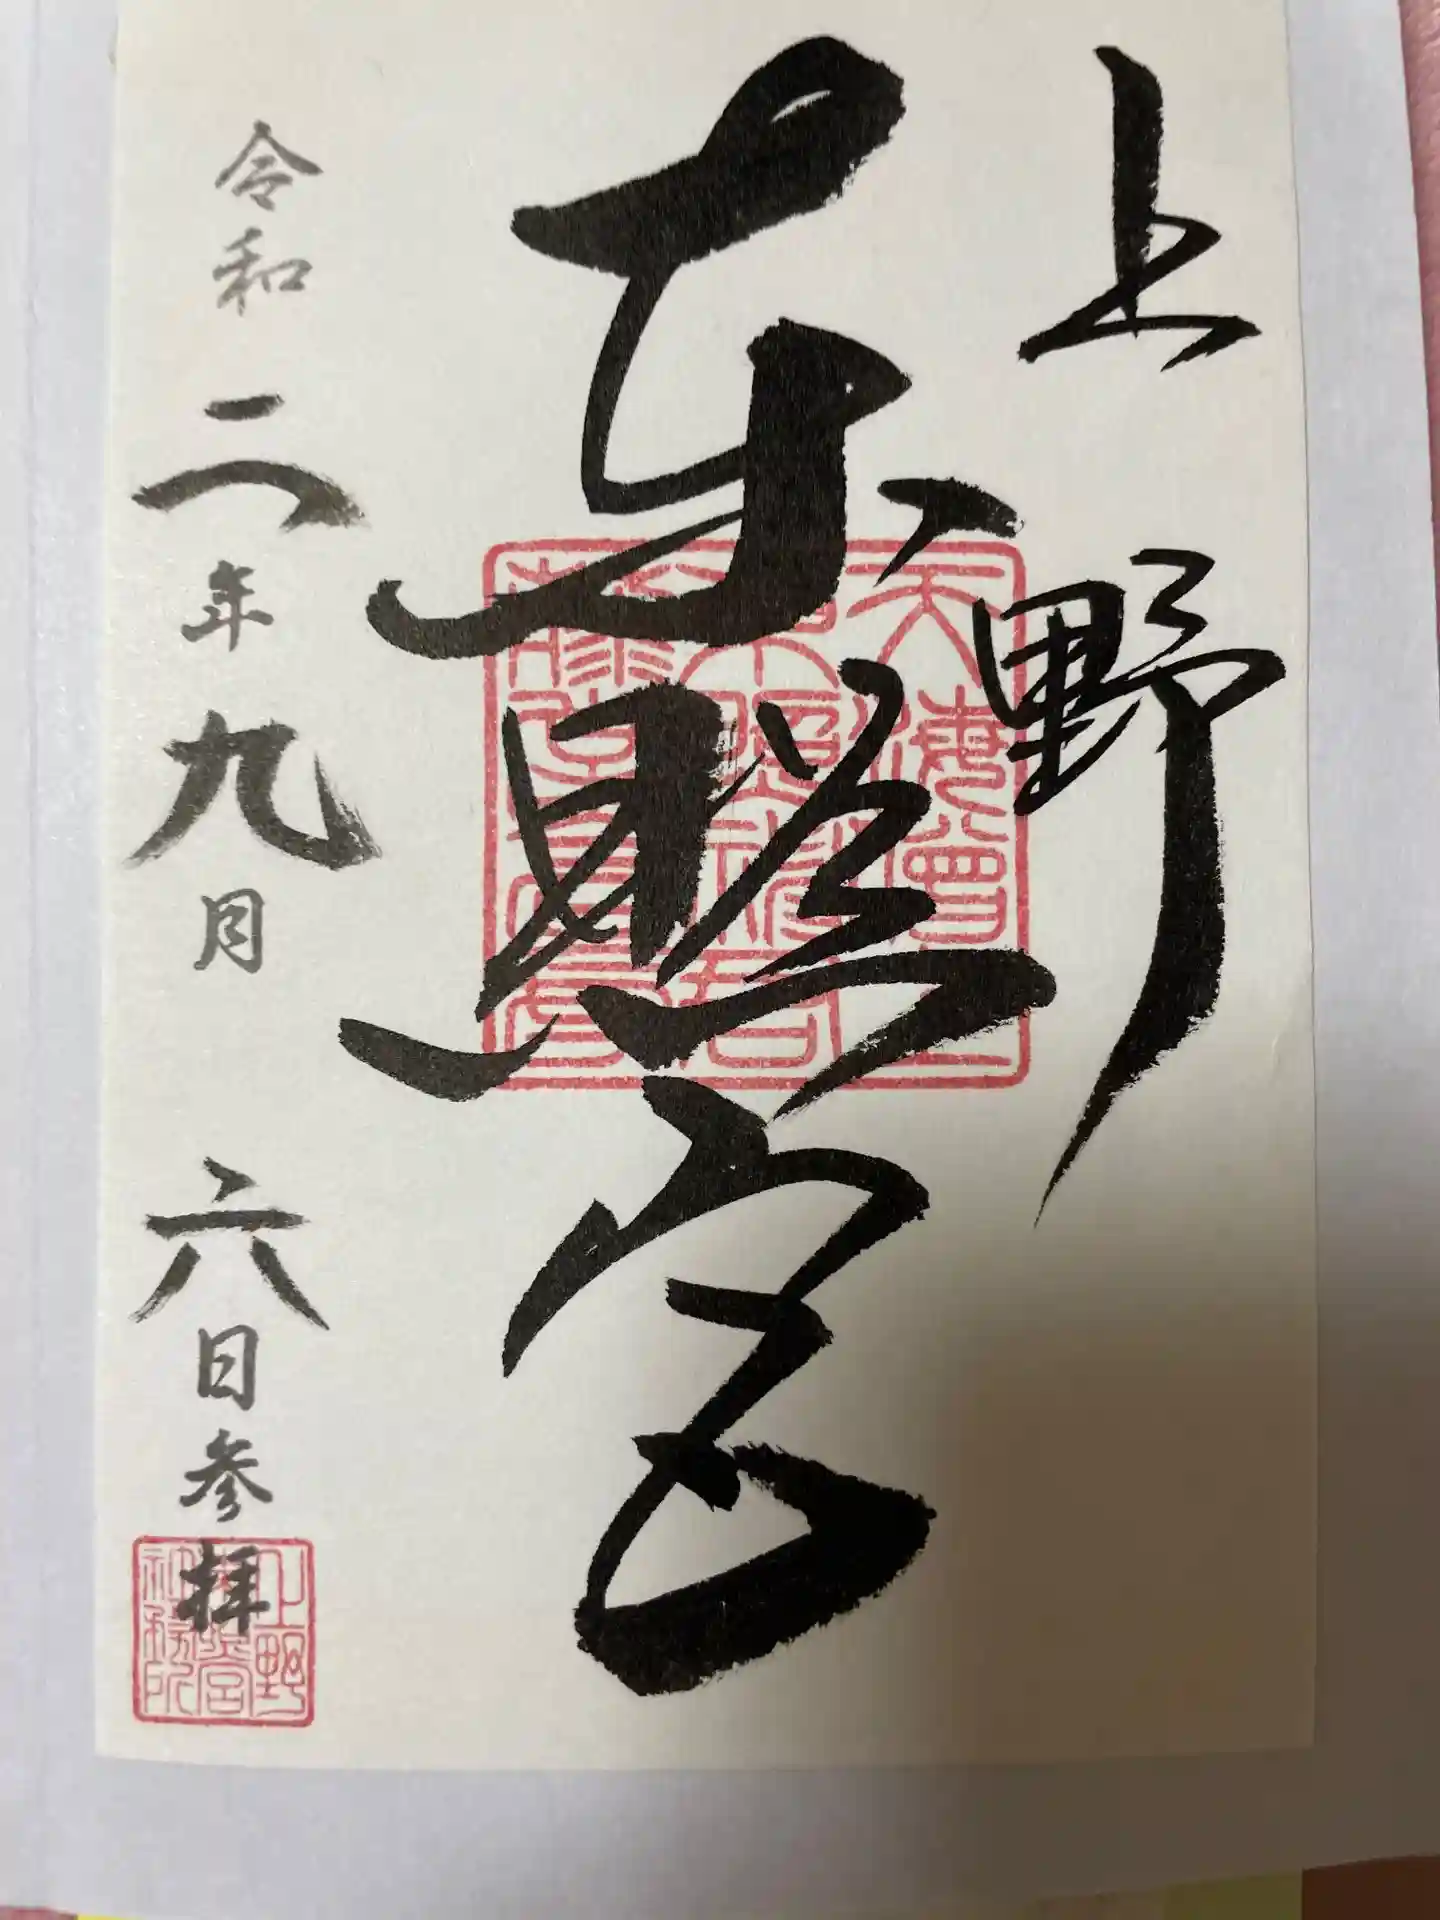 上野
東照宮
令和二年九月六日参拝
上野
東照宮
社務所